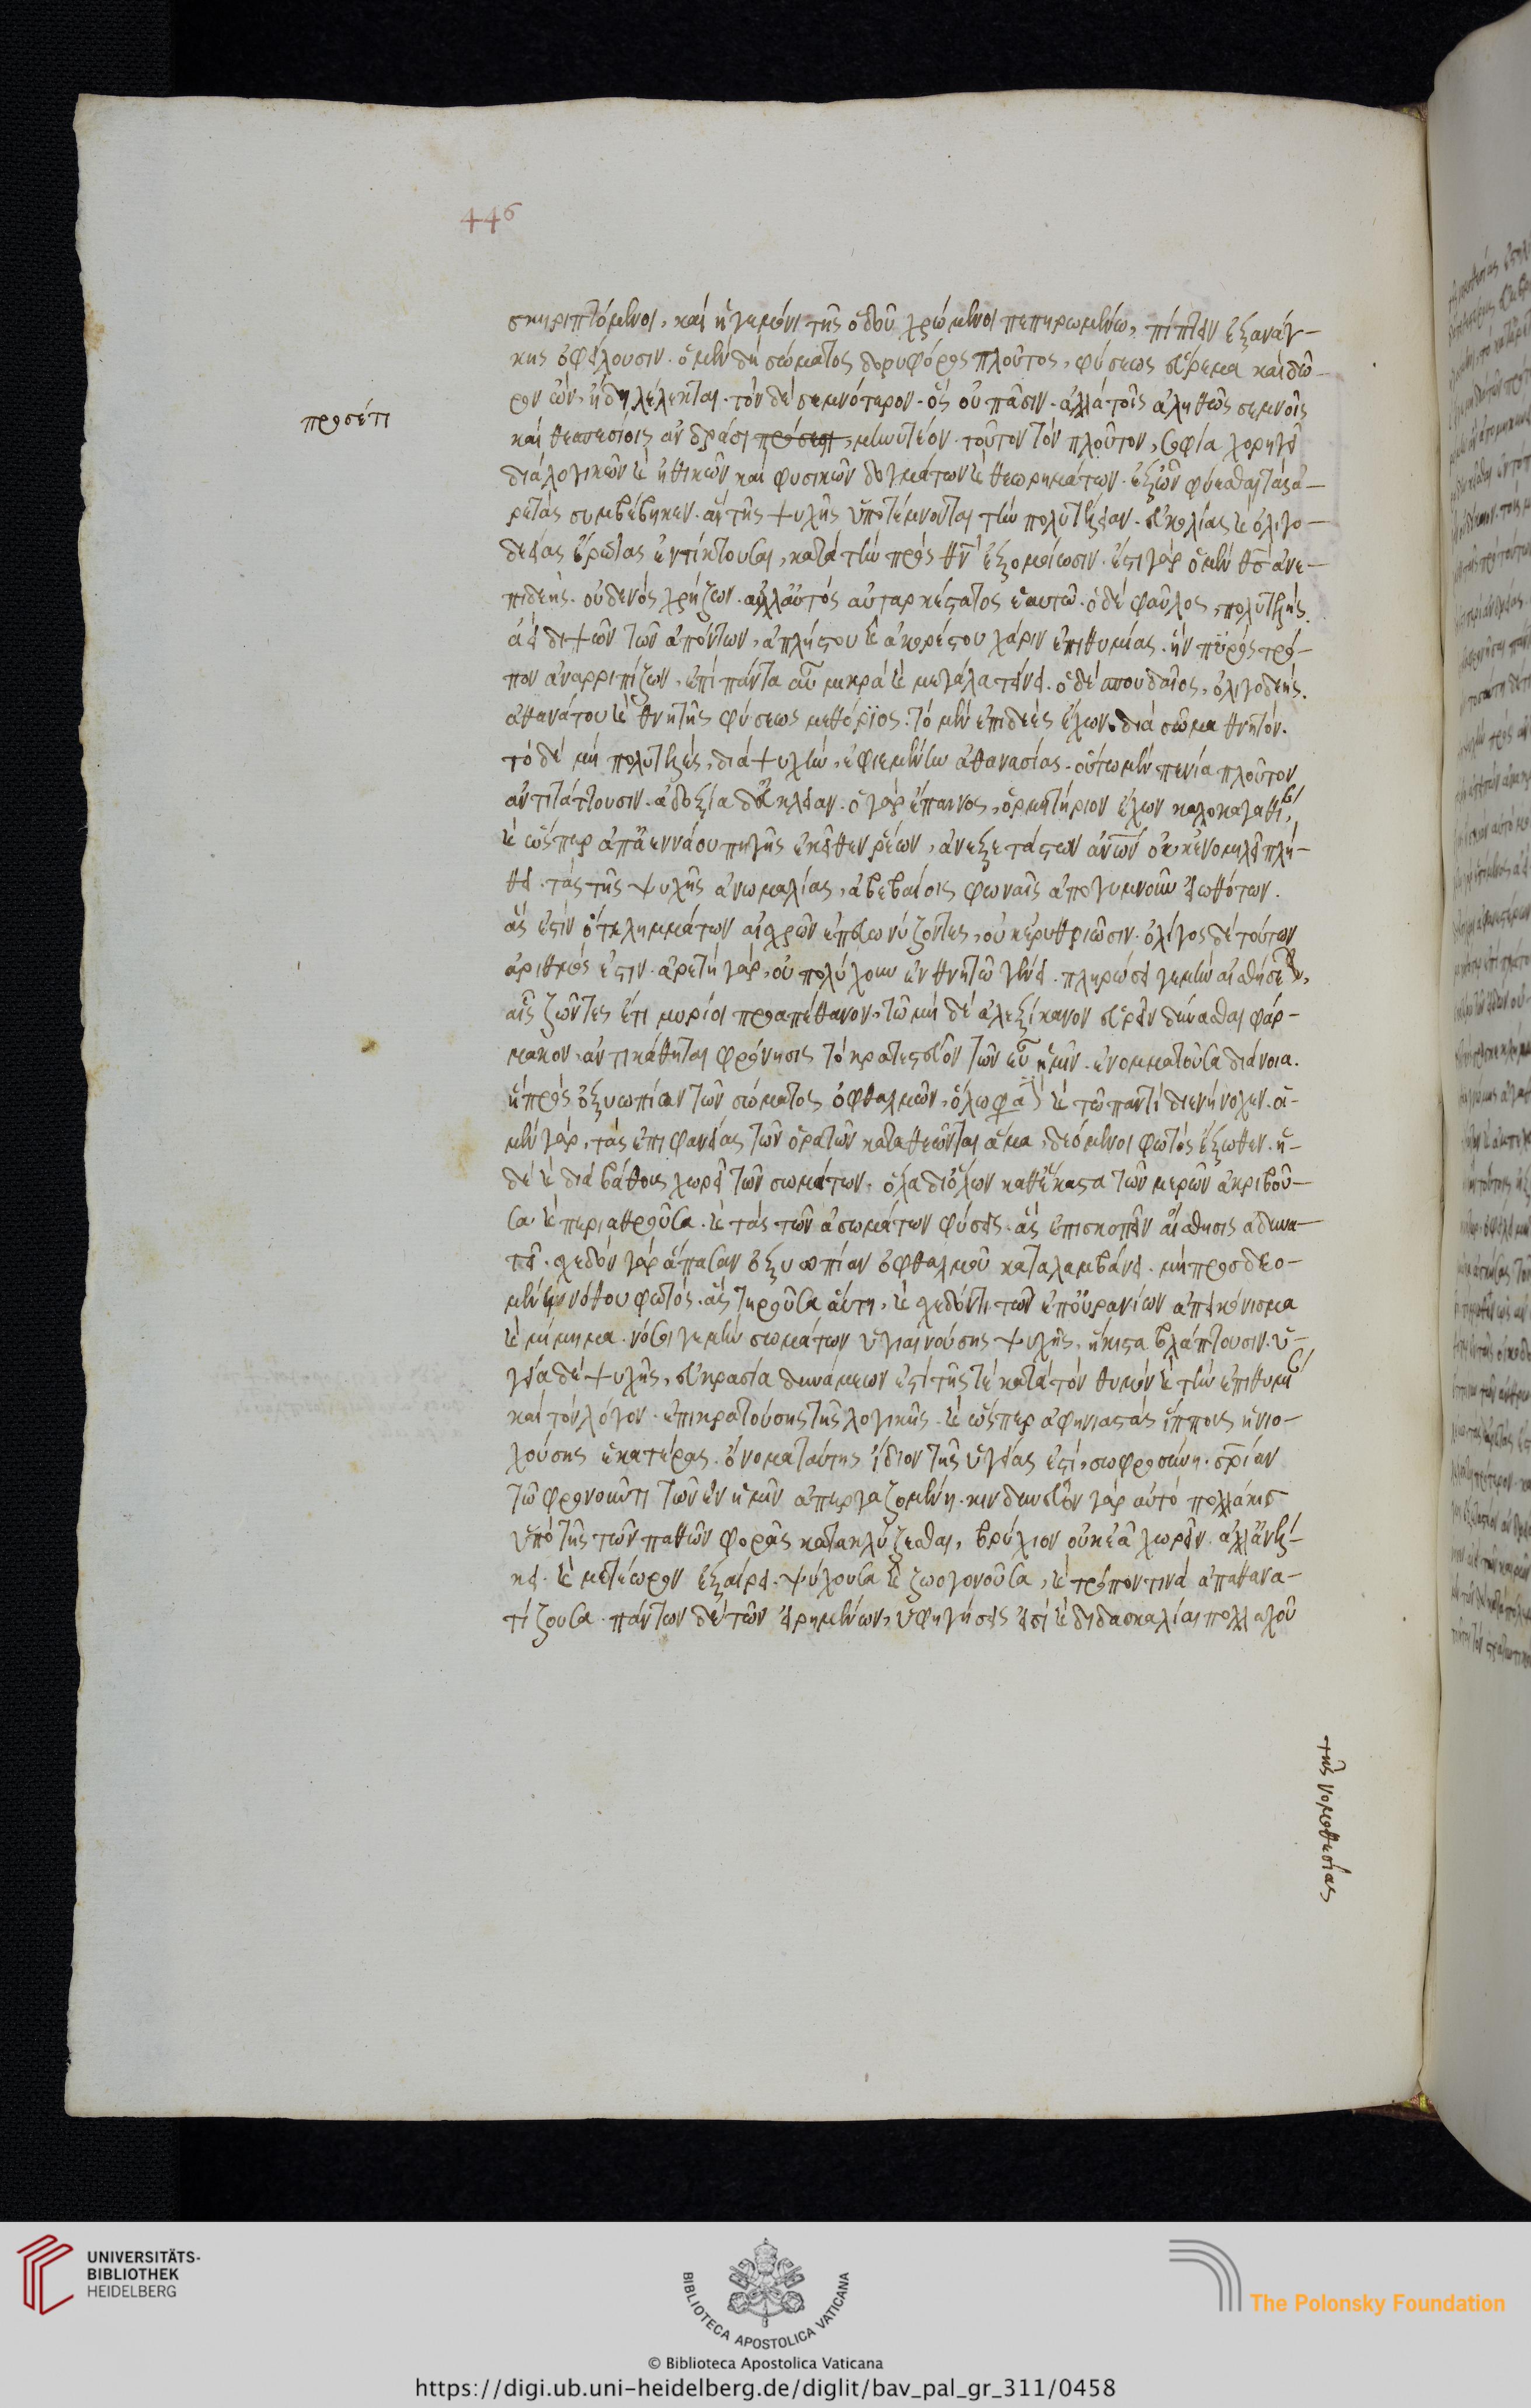 446
σκηριπτόμενοι, καὶ ἡγεμόνι τῆς ὁδοῦ χρώμενοι πεπηρωμένω, πίπτειν ἐξανάγ-
κης ὀφείλουσιν. ὁ μὲν δὴ σώματος δορυφόρος πλοῦτος, φύσεως εὕρεμα καὶ δῶ-
ρον ὢν, ἤδη λέλεκται. τὸν δὲ σεμνότερον. ὃς οὐ πᾶσιν. ἀλλὰ τοῖς ἀληθῶς σεμνοῖς
προσέτι
καὶ θεσπεσίοις ἀνδράσι πρόσεστι, μηνυτέον. τοῦτον τὸν πλοῦτον, σοφία χορηγεῖ
διὰ λογικῶν καὶ ἠθικῶν καὶ φυσικῶν δογμάτων καὶ θεωρημάτων. ἐξ ὧν φύεσθαι τὰς ἀ-
ρετὰς συμβέβηκεν. αἳ τῆς ψυχῆς ὑποτέμνονται τὴν πολυτέλειαν. εὐκολίας καὶ ὀλιγο-
δεΐας ἔρωτας ἐντίκτουσαι, κατὰ τὴν πρὸς θν ἐξομοίωσιν. ἔστι γὰρ ὁ μὲν θσ ἀνε-
πιδεὴς. οὐδενὸς χρήζων. ἀλλ' αὐτὸς αὐταρκέστατος ἑαυτῶ. ὁ δὲ φαῦλος, πολυδεής.
ἀεὶ διψῶν τῶν ἀπόντων, ἀπλήστου καὶ ἀκορέστου χάριν ἐπιθυμίας. ἣν πυρὸς τρό-
πον ἀναρριπίζων, ἐπὶ πάντα μικρὰ καὶ μεγάλα τείνει. ὁ δὲ σπουδαῖος, ὀλιγοδεής.
ἀθανάτου καὶ θνητῆς φύσεως μεθόριος. τὸ μὲν ἐπιδεὲς ἔχων διὰ σῶμα θνητόν.
τὸ δὲ μὴ πολυδεές, διὰ ψυχὴν, ἐφιεμένην ἀθανασίας. οὕτω μὲν πενία πλοῦτον
ἀντιτάττουσιν. ἀδοξία δὲ κλέαν. ὁ γὰρ ἔπαινος, ὁρμητήριον ἔχων καλοκἀγαθί
καὶ ὥσπερ ἀπ' ἀεννάου πηγῆς ἐκεῖθεν ῥέων, ἀνεξετάστων ἀνων οὐκ ἐνομιλεῖ πλή-
θει. τὰς τῆς ψυχῆς ἀνωμαλίας, ἀβεβαίοις φωναῖς ἀπογυμνοῦν εἰωθότων.
ἃς ἔστιν ὅτε λημμάτων αἰσχρῶν ἐπευωνίζοντες, οὐκ ἐρυθριῶσιν. ὀλίγος δὲ τούτων
ἀριθμὸς ἐστιν. ἀρετὴ γὰρ, οὐ πολύχουν ἐν θνητῶ γένει. πληρώσει γεμὴν αἰσθήσε
αἷς ζῶντες ἔτι μυρίοι προαπέθανον, τῶ μὴ δὲ ἀλεξίκακον εὑρεῖν δύνασθαι φάρ-
μακον, ἀντικάθηται φρόνησις τὸ κράτιστον τῶν ἐν ἡμῖν. ἐνομματοῦσα διάνοια.
ἡ πρὸς ὀξυωπίαν τῶν σώματος ὀφθαλμῶν, ὅλω καὶ τῶ παντὶ διενήνοχεν. οἱ
μὲν γὰρ, τὰς ἐπιφανείας τῶν ὁρατῶν καταθεῶνται ἅμα, δεόμενοι φωτὸς ἔξωθεν. ἡ-
δὲ καὶ διὰ βάθους χωρεῖ τῶν σωμάτων, ὅλα δι' ὅλων καθ' ἕκαστα τῶν μερῶν ἀκριβοῦ-
σα καὶ περιαθροῦσα. καὶ τὰς τῶν ἀσωμάτων φύσεις. ἃς ἐπισκοπεῖν αἴσθησις ἀδυνα-
τεῖ. σχεδὸν γὰρ ἅπασαν ὀξυωπίαν ὀφθαλμοῦ καταλαμβάνει. μὴ προσδεο-
μένη νόθου φωτός. ἀστὴρ οὖσα αὐτη, καὶ σχεδόν τι τῶν ἐπουρανίων ἀπεικόνισμα
καὶ μίμημα. νόσοι γεμὴν σωμάτων ὑγιαινούσης ψυχῆς, ἥκιστα βλάπτουσιν. ὑ-
γεία δὲ ψυχῆς, εὐκρασία δυνάμεων ἐστὶ τῆς τε κατὰ τὸν θυμὸν καὶ τὴν ἐπιθυμί
καὶ τὸν λόγον. ἐπικρατούσης τῆς λογικῆς. καὶ ὥσπερ ἀφηνιαστὰς ἵππους ἡνιο-
χούσης ἑκατέρας. ὄνομα ταύτης ἴδιον τῆς ὑγείας ἐστὶ, σωφροσύνη. σρίαν
τῶ φρονοῦντι τῶν ἐν ἡμῖν ἀπεργαζομένη. κινδυνεῦον γὰρ αὐτὸ πολλάκισ
ὑπὸ τῆς τῶν παθῶν φορᾶς κατακλύζεσθαι, βρύχιον οὐκ ἐᾶ χωρεῖν. ἀλλ' ἀνέλ-
κει. καὶ μετέωρον ἐξαίρει. ψύχουσα καὶ ζωογονοῦσα, καὶ τρόπον τινὰ ἀπαθανα-
τίζουσα. πάντων δὲ τῶν εἰρημένων, ὑφηγήσεις εἰσὶ καὶ διδασκαλίαι πολλαχοῦ
τῆς νομοθεσίας
UNIVERSITÄTS-
BIBLIOTHEK
HEIDELBERG
BIBLIOTECA APOSTOLICA VATICANA
The Polonsky Foundation
© Biblioteca Apostolica Vaticana
https://digi.ub.uni-heidelberg.de/diglit/bav_pal_gr_311/0458